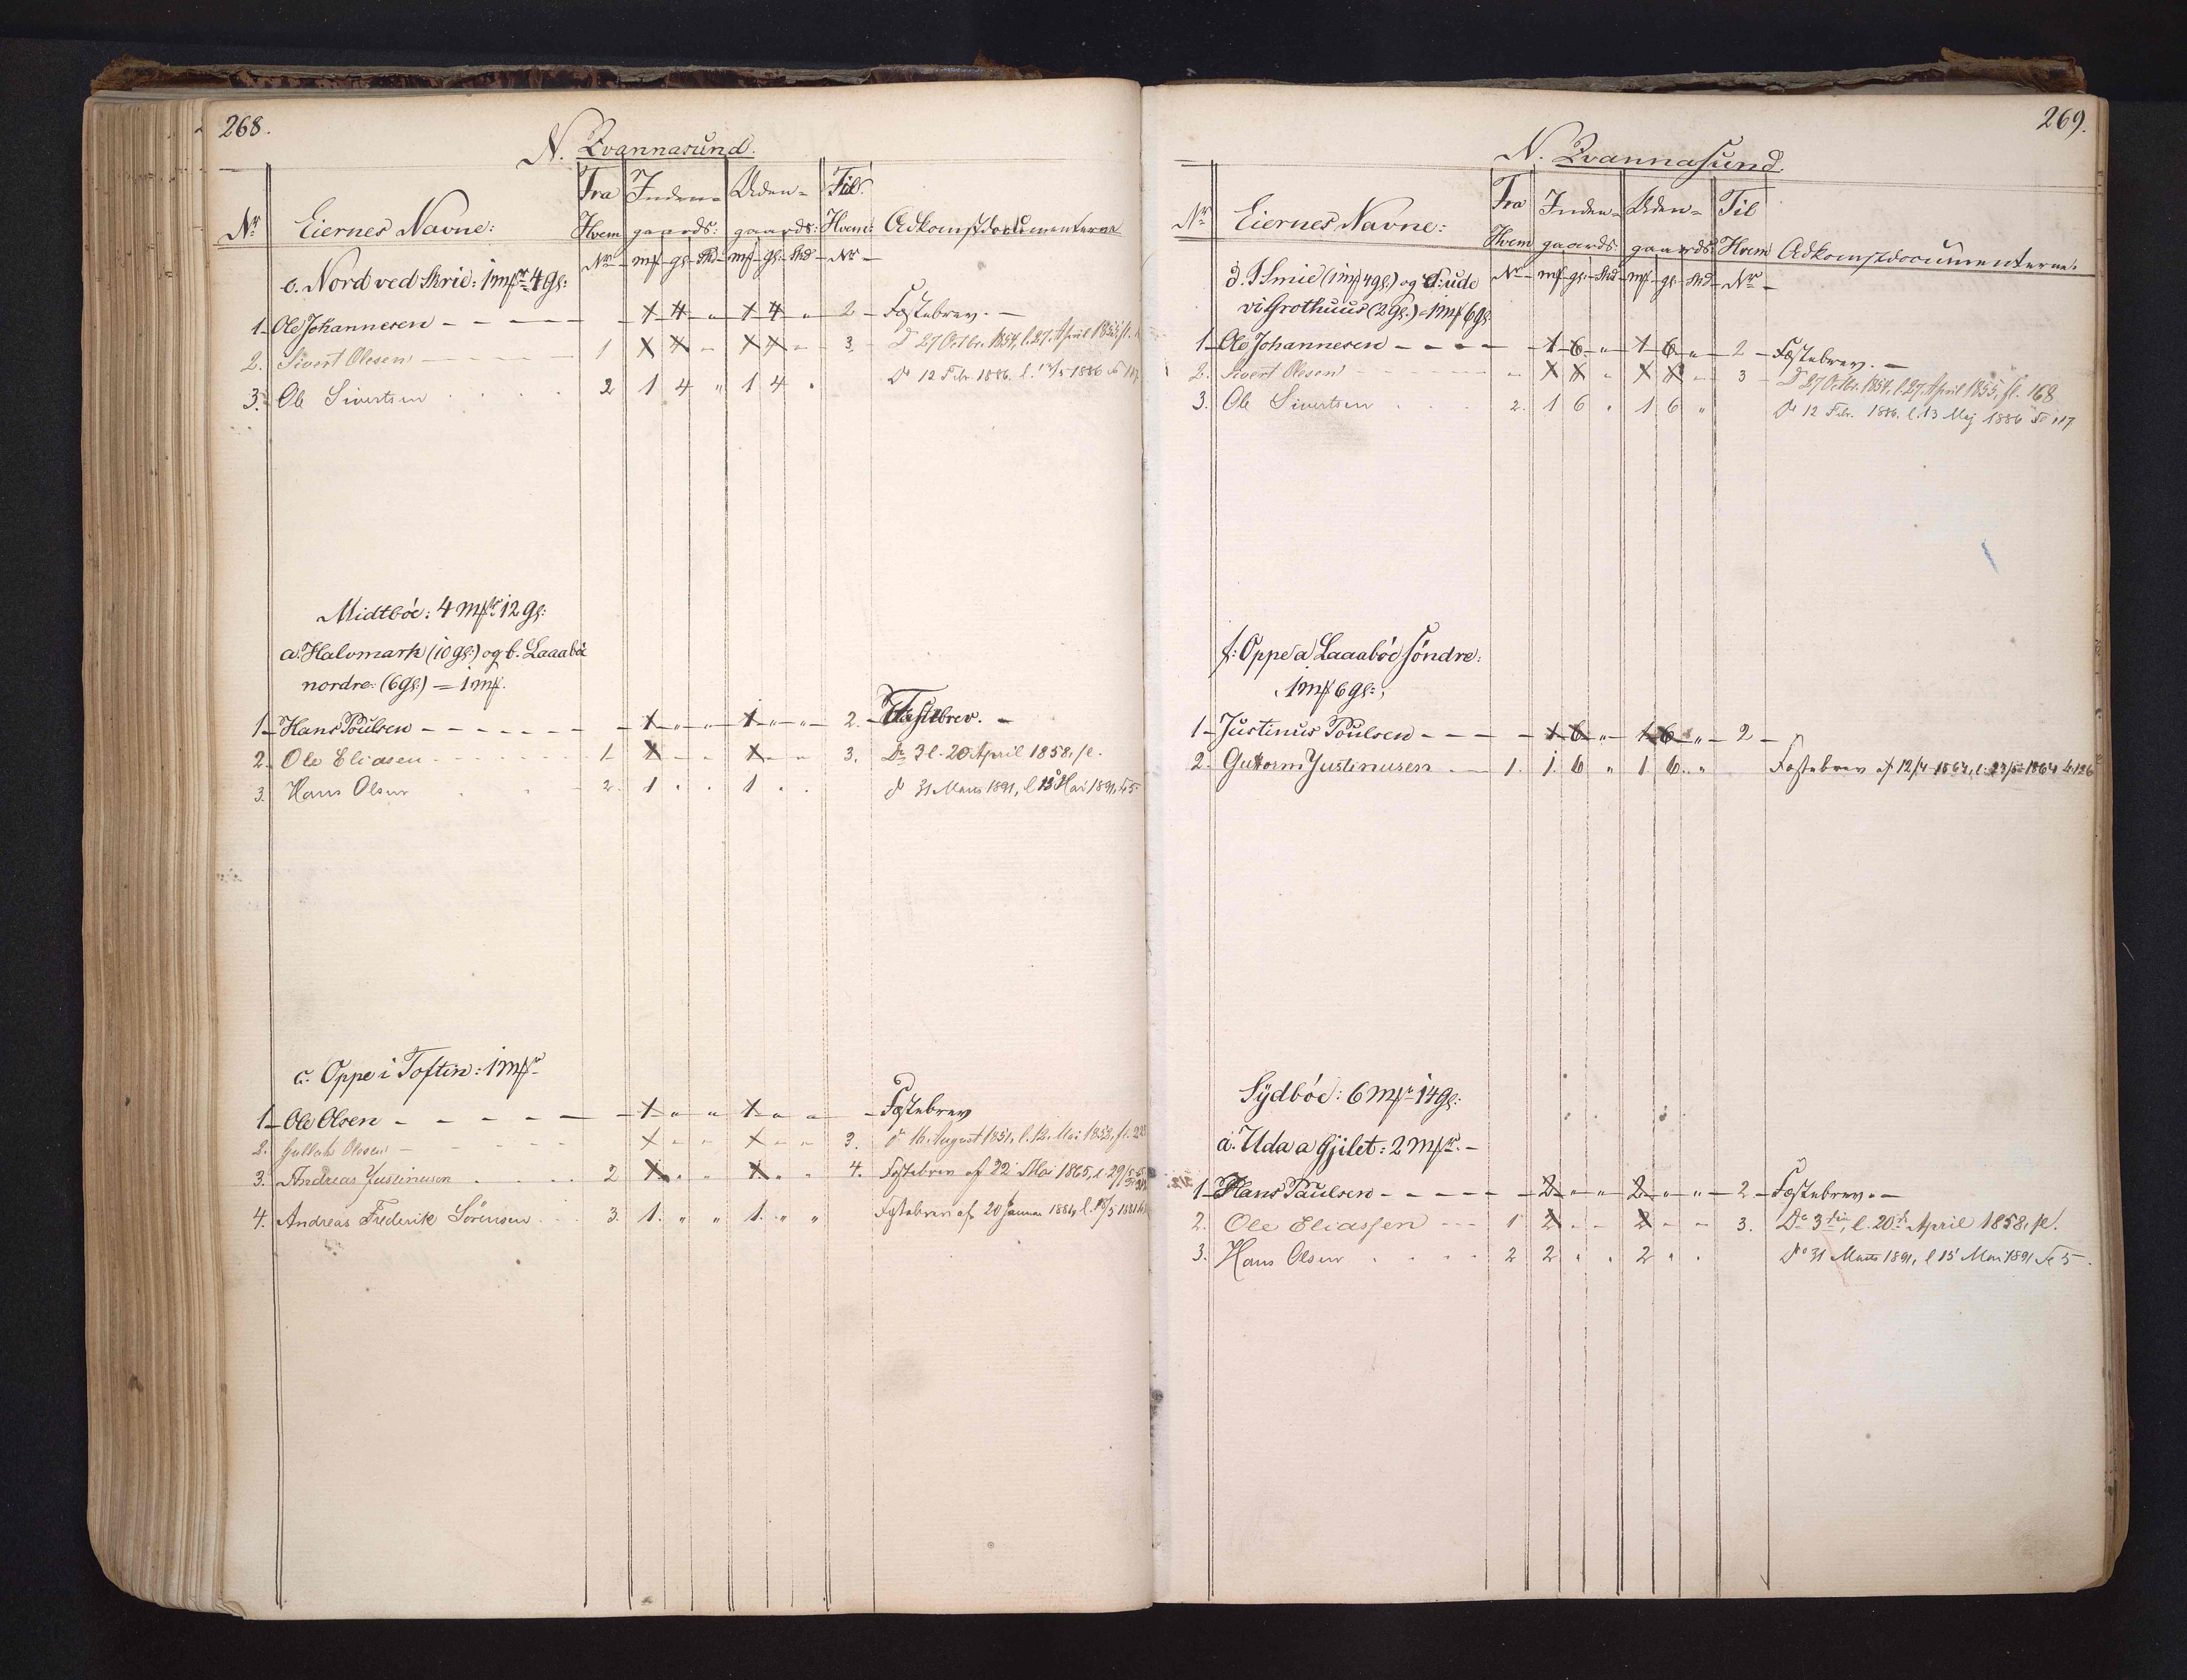 268.
N. Qvannasund.
Nr Eiernes Navne: Fra Hvem Inden- gaards: Uden- gaards: Til Hvem: Adkomstdocumenterne
Nr mk gl. Skd mk gl. Skd Nr
e. Nord ved Skrid: 1 mkr 4 gl:
1 Ole Johannesen 1 4 " 1 4 " 2 Fæstebrev.
2. Sivert Olesen 1 1 4 1 4 3. Do 27 Octbr. 1854, l. 27. April 1855, fl.
3. Ole Sivertsen 2 1 4 " 1 4 " Do 12 Febr. 1886. l. 13/5 1886 Fo 117
Midtböe: 4 mkr 12 gl:
a. Halvmark (10 gl:) og b. Laaaböe
nordre: (6 gl:) = 1 mk.
1 Hans Poulsen 1 " " 1 " " 2. Fæstebrev.
2. Ole Eliasen 1 1 1 3. Do 3 l. 20 April 1858, fl.
3. Hans Olsen 2. 1 " " 1 " " Do 31 Marts 1891, l 15 Mai 1891, Fo 5
c. Oppe i Toften: 1 mkr
1 Ole Olsen 1 " " 1 " " Fæstebrev
2. Olesen 1 " " 1 " " 3. Do 16. August 1851, l. 12. Mai 1853, fl.
3. Andreas Justinusen 2 1 " " 1 " " 4. Fæstebrev af 22 Mai 1865, l 29/5
4. Andreas Frederik Sörensen 3. 1. " " 1. " " Fæstebrev af 20 Januar
269.
N. Qvannasund.
Nr Eiernes Navne: Fra Hvem Inden- gaards Uden- gaards: Til Hvem Adkomstdocumenterne:
Nr mk gl. Skd mk gl. Skd Nr
d. I Smid (1 mk 4 gl:) og e: ude
vi Grothuus (2 gl:) = 1 mk 6 gl:
1 Ole Johannesen 1 6 " 1 6 " 2 Fæstebrev.
2. Sivert Olesen " 1 6 " 1 6 3 Do 27 Octbr. 1854, l. 27. April 1855, fl. 168
3. Ole Sivertsen 2. 1 6 " 1 6 " Do 12 Febr. 1886. l. 13 Maj 1886 Fo 117
f: Oppe a Laaaböe söndre:
1 mk 6 gl:
1 Justinus Poulsen 1 6 " 1 6 " 2
2. Guttorm Justinusen 1. 1. 6 " 1 6. " Fæstebrev af 12/4 1864, l. 23/5 1864 fo 126
Sÿdböe: 6 mkr 14 gl:
a. Uda a Gjilet: 2 mkr.
1 Hans Paulsen 2 " " 2 " " 2 Fæstebrev.
2. Ole Eliassen 1 2 2 3. Do 3die, l. 20de April 1858, fl.
3. Hans Olsen 2 2 " " 2 " " Do 31 Marts 1891, l 15 Mai 1891 Fo 5.